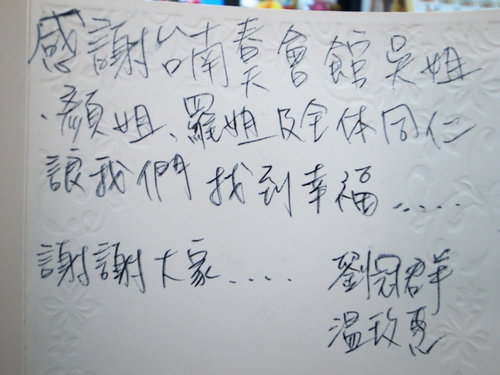 感謝台喃奠會館吳姐
、顏姐、羅姐及全体同仁
讓我們找到幸福.....
謝謝大家....
劉冠群
温玫惠